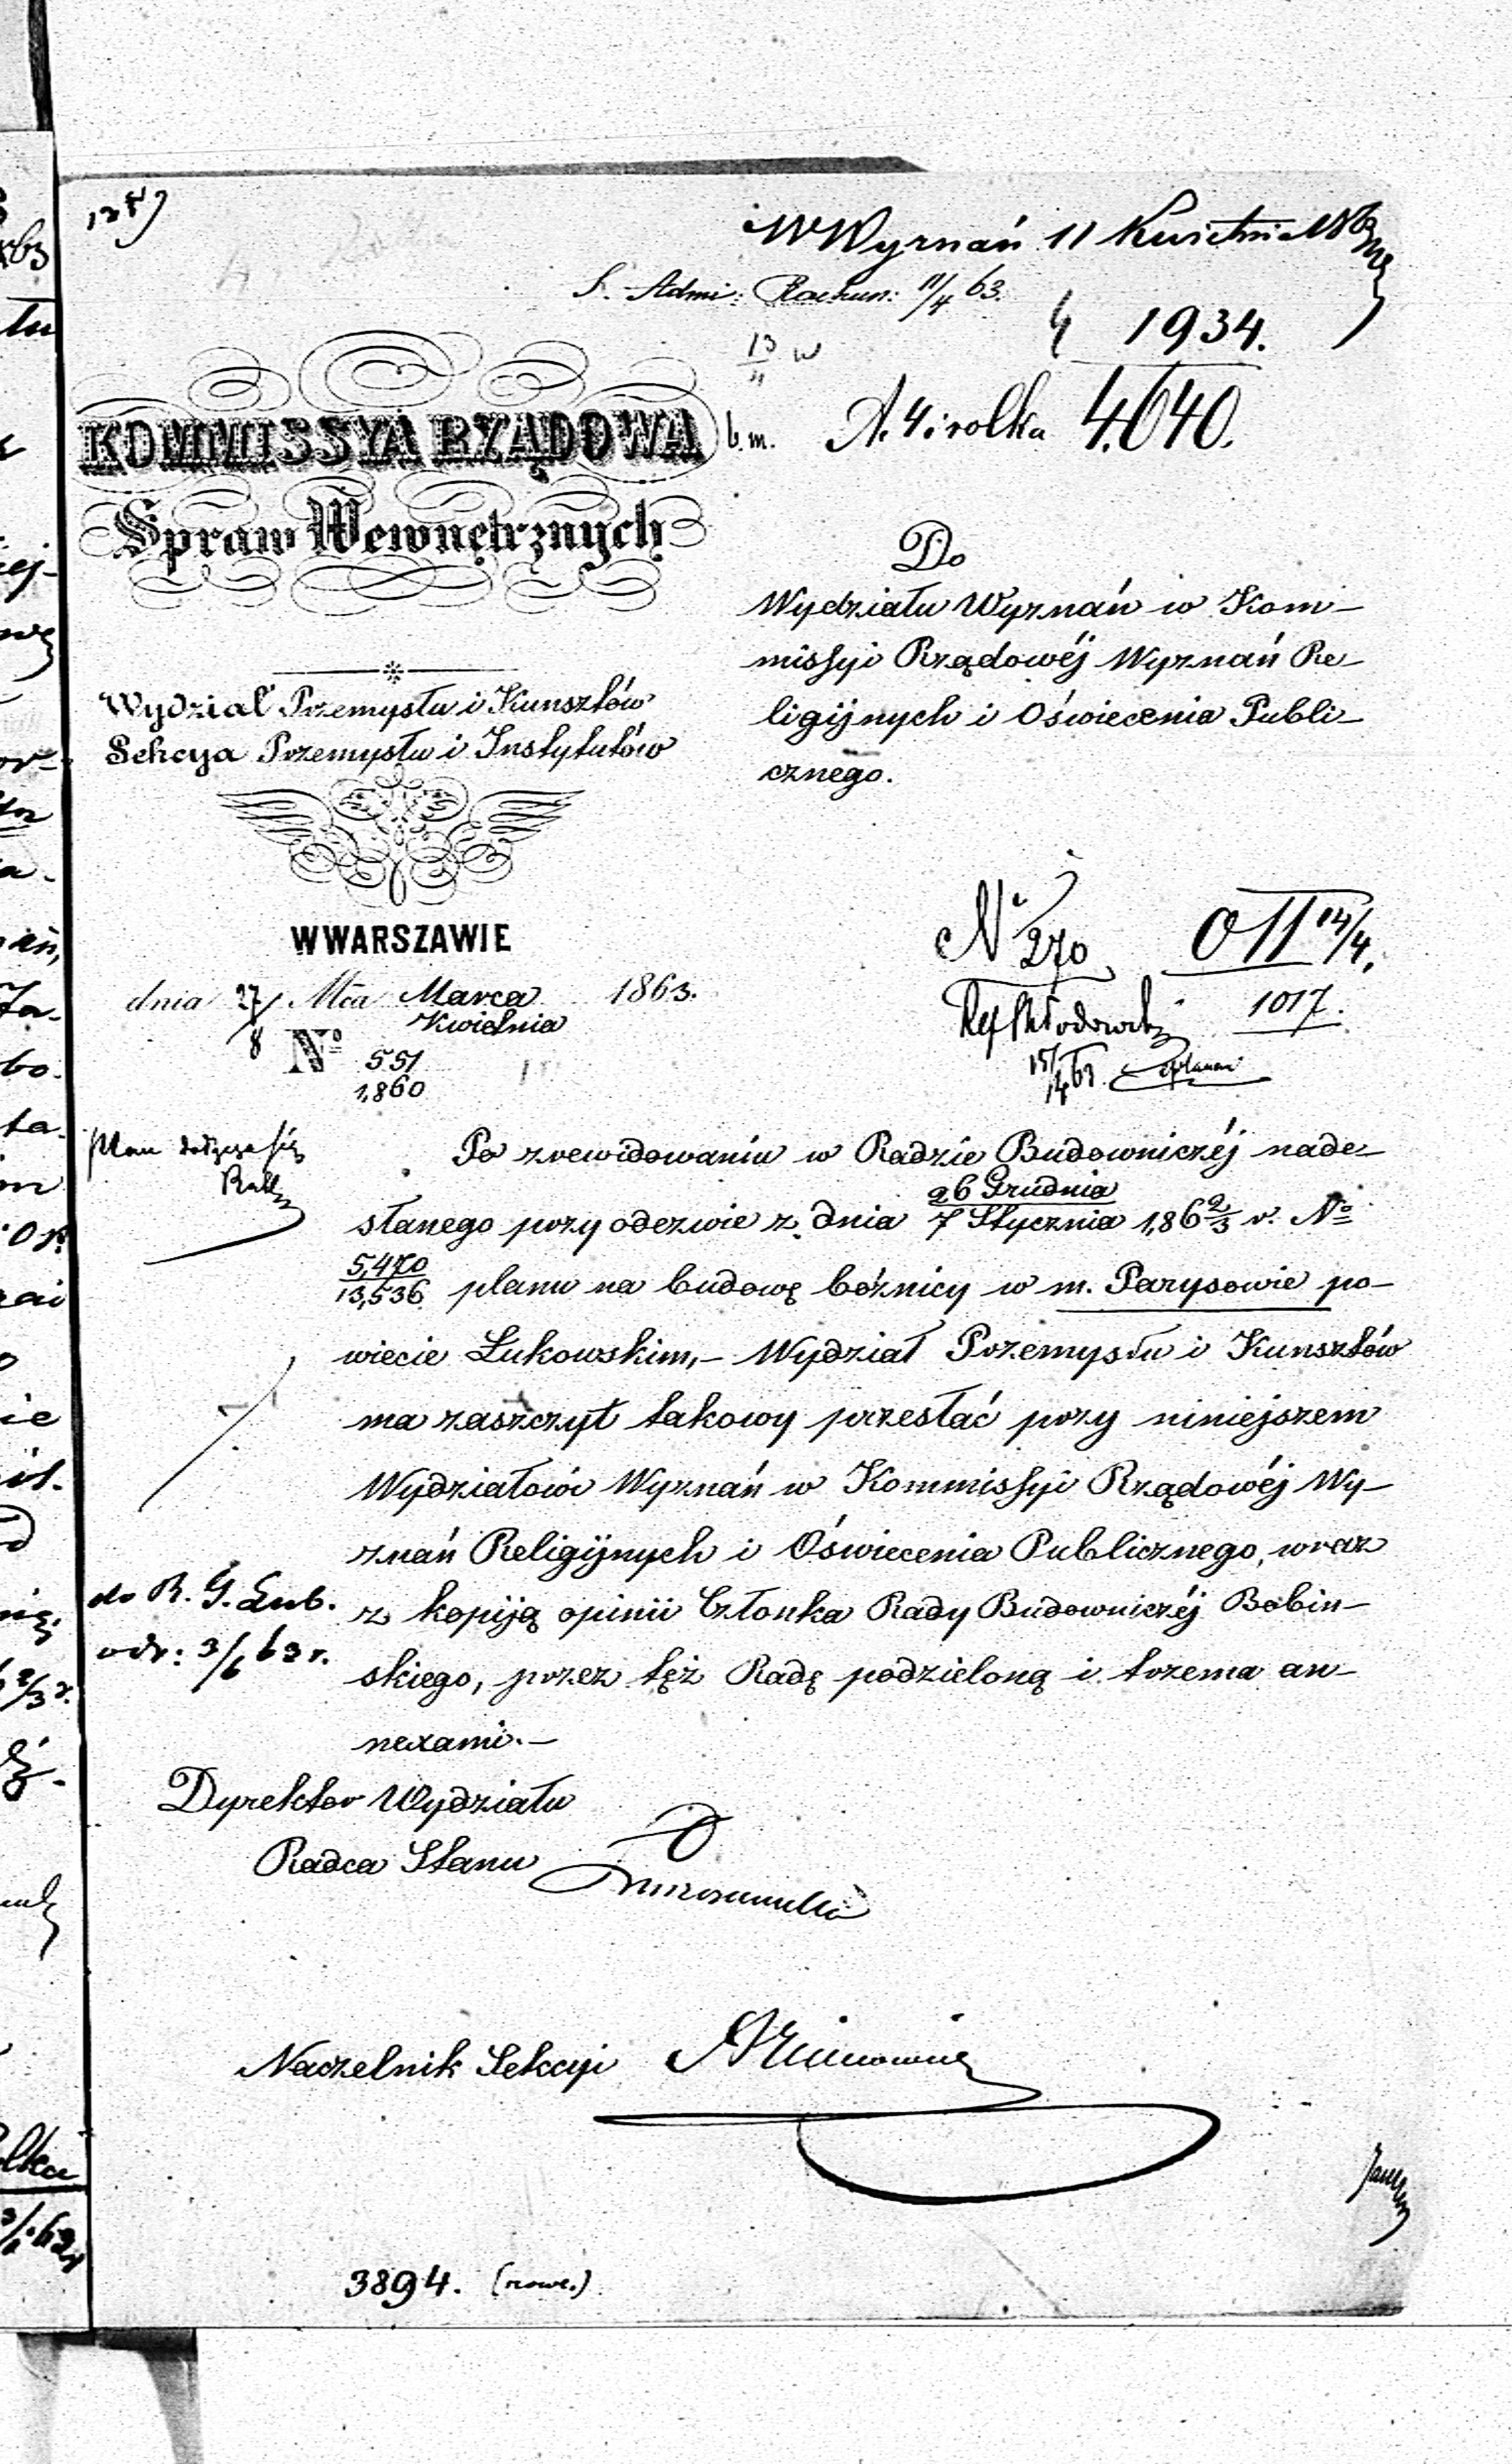 W Wyznań 11 Kwietnia 1863
S. Admi: Rachun: 11/4 63.
1934.
13/4 w
KOMMISSYA RZĄDOWA
b.m. A. 4 i rolka 4640.
Spraw Wewnętrznych
Do
Wydziału Wyznań w Kom-
missyi Rządowéj Wyznań Re-
ligijnych i Oświecenia Publi-
cznego.
Wydział Przemysłu i Kunsztów
Sekcya Przemysłu i Instytutów
W WARSZAWIE
dnia 27/8 Mca Marca 1863.
Kwietnia
No 551
1,860
No 270 O II 14/4.
1017.
15/4 63.
Plan dołącza się
Po zrewidowaniu w Radzie Budowniczéj nade-
26 Grudnia
słanego przy odezwie z dnia 7 Stycznia 1,86 2/3 r. No
5,470
13,536 planu na budowę bóżnicy w m. Parysowie po-
wiecie Łukowskim,- Wydział Przemysłu i Kunsztów
ma zaszczyt takowy przesłać przy niniejszem
Wydziałowi Wyznań w Kommissyi Rządowéj Wy-
znań Religijnych i Oświecenia Publicznego, wraz
do R. G. Lub.
z kopiją opinii Członka Rady Budowniczéj Bobin-
odr: 3/6 63 r.
skiego, przez tęż Radę podzieloną i trzema an-
nexami.-
Dyrektor Wydziału
Radca Stanu
Naczelnik Sekcyi
3894. (nowe.)